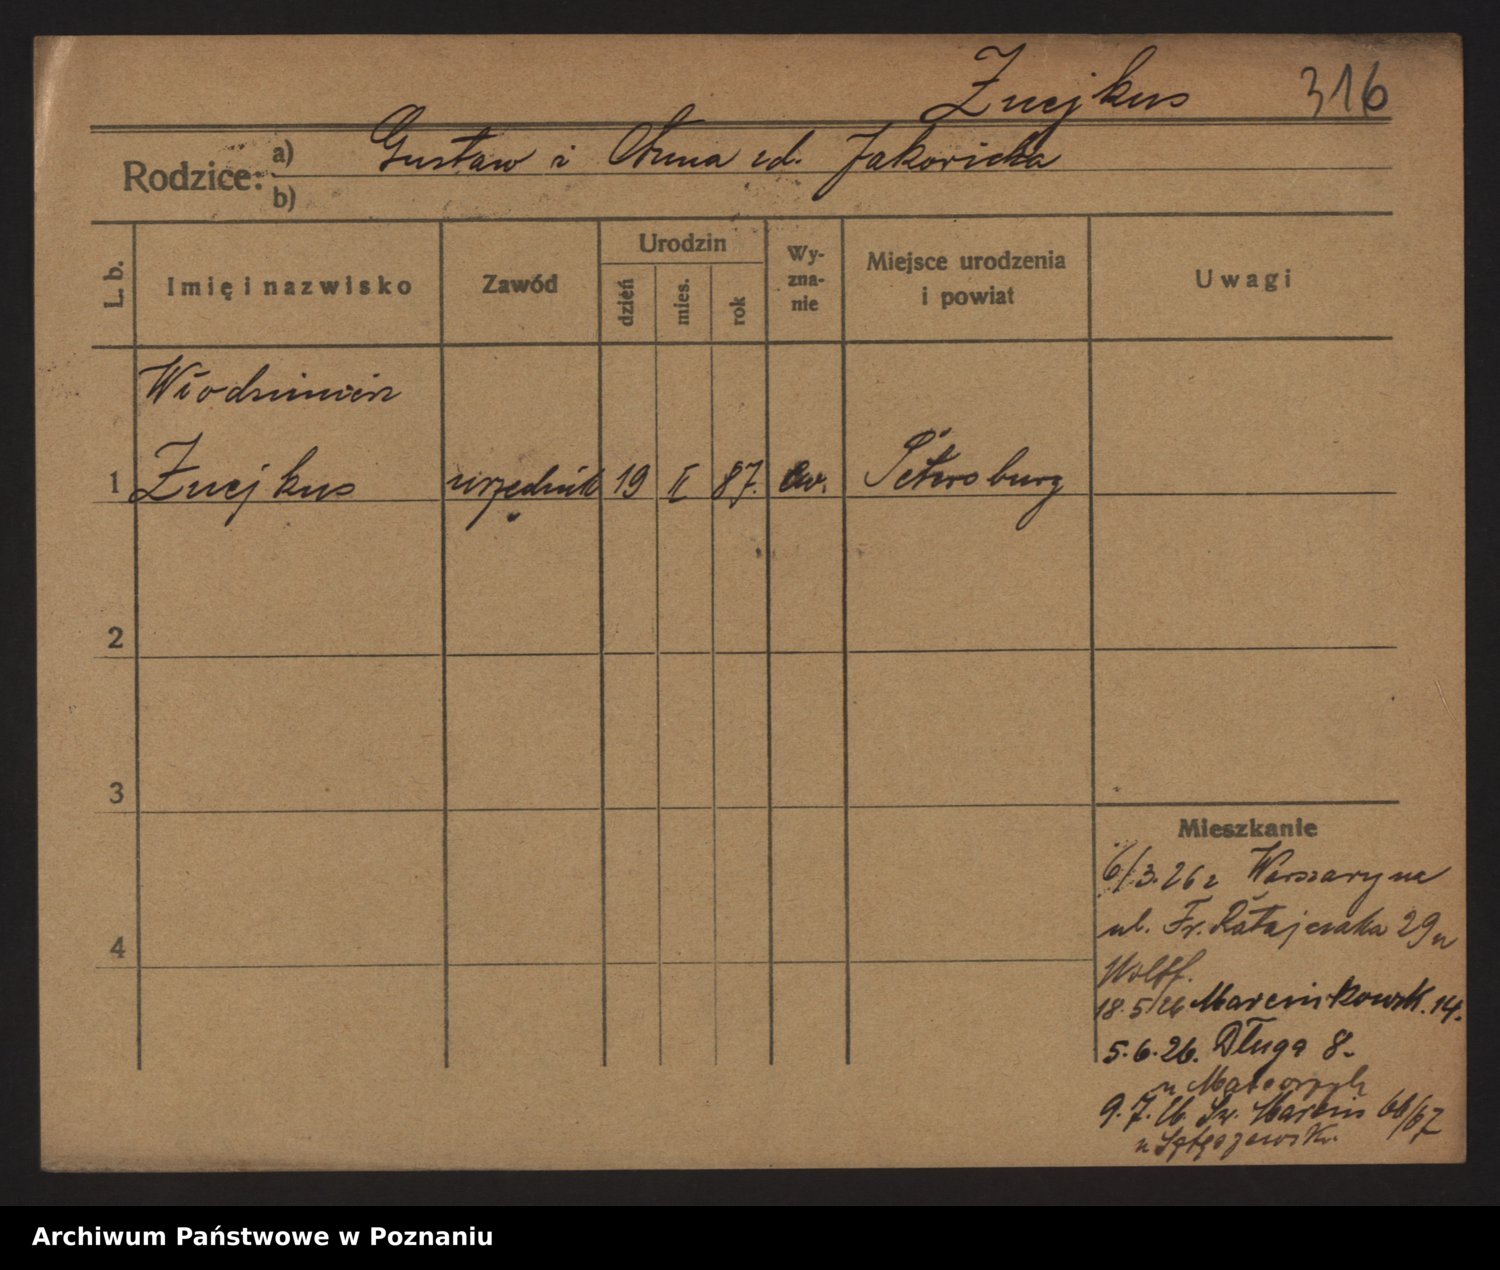 Żuejkus 316
Rodzice: a) Gustaw i Anna zd. Jakoricka
b)
L. b. Imię i nazwisko Zawód Urodzin dzień mies. rok Wyznanie Miejsce urodzenia i powiat Uwagi
Włodzimierz
1 Żuejkus urzędnik 19 II 87. ew. Petersburg
2
3
Mieszkanie
6/3.26 z Warszawy na
ul. Fr. Ratajczaka 29 u
4
Wolff.
18.5/26 Marcinkowsk. 14.
5.6.26. Długa 8.
u
9.7.26 Św. Marcin 66/67
u
Archiwum Państwowe w Poznaniu